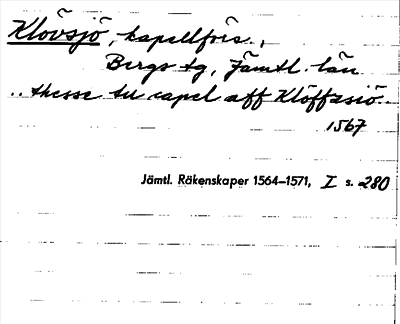 Klövsjö, kapellförs.,
Bergs tg, Jämtl. län
.. thesse tu capel aff Klöffasiö..
1567
Jämtl. Räkenskaper 1564–1571, I s. 280